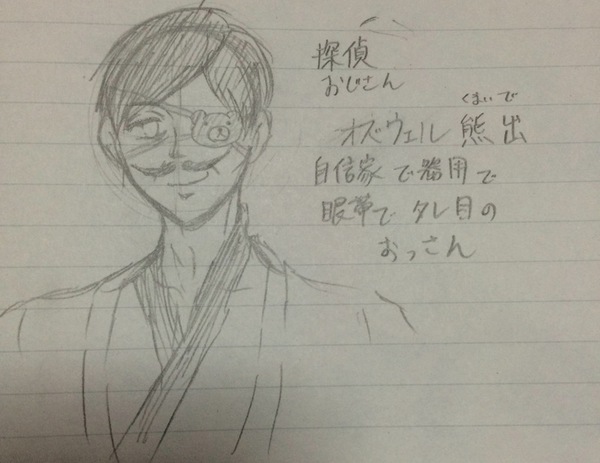 探偵
おじさん
くまいで
オズウェル 熊出
自信家で器用で
眼帯でタレ目の
おっさん